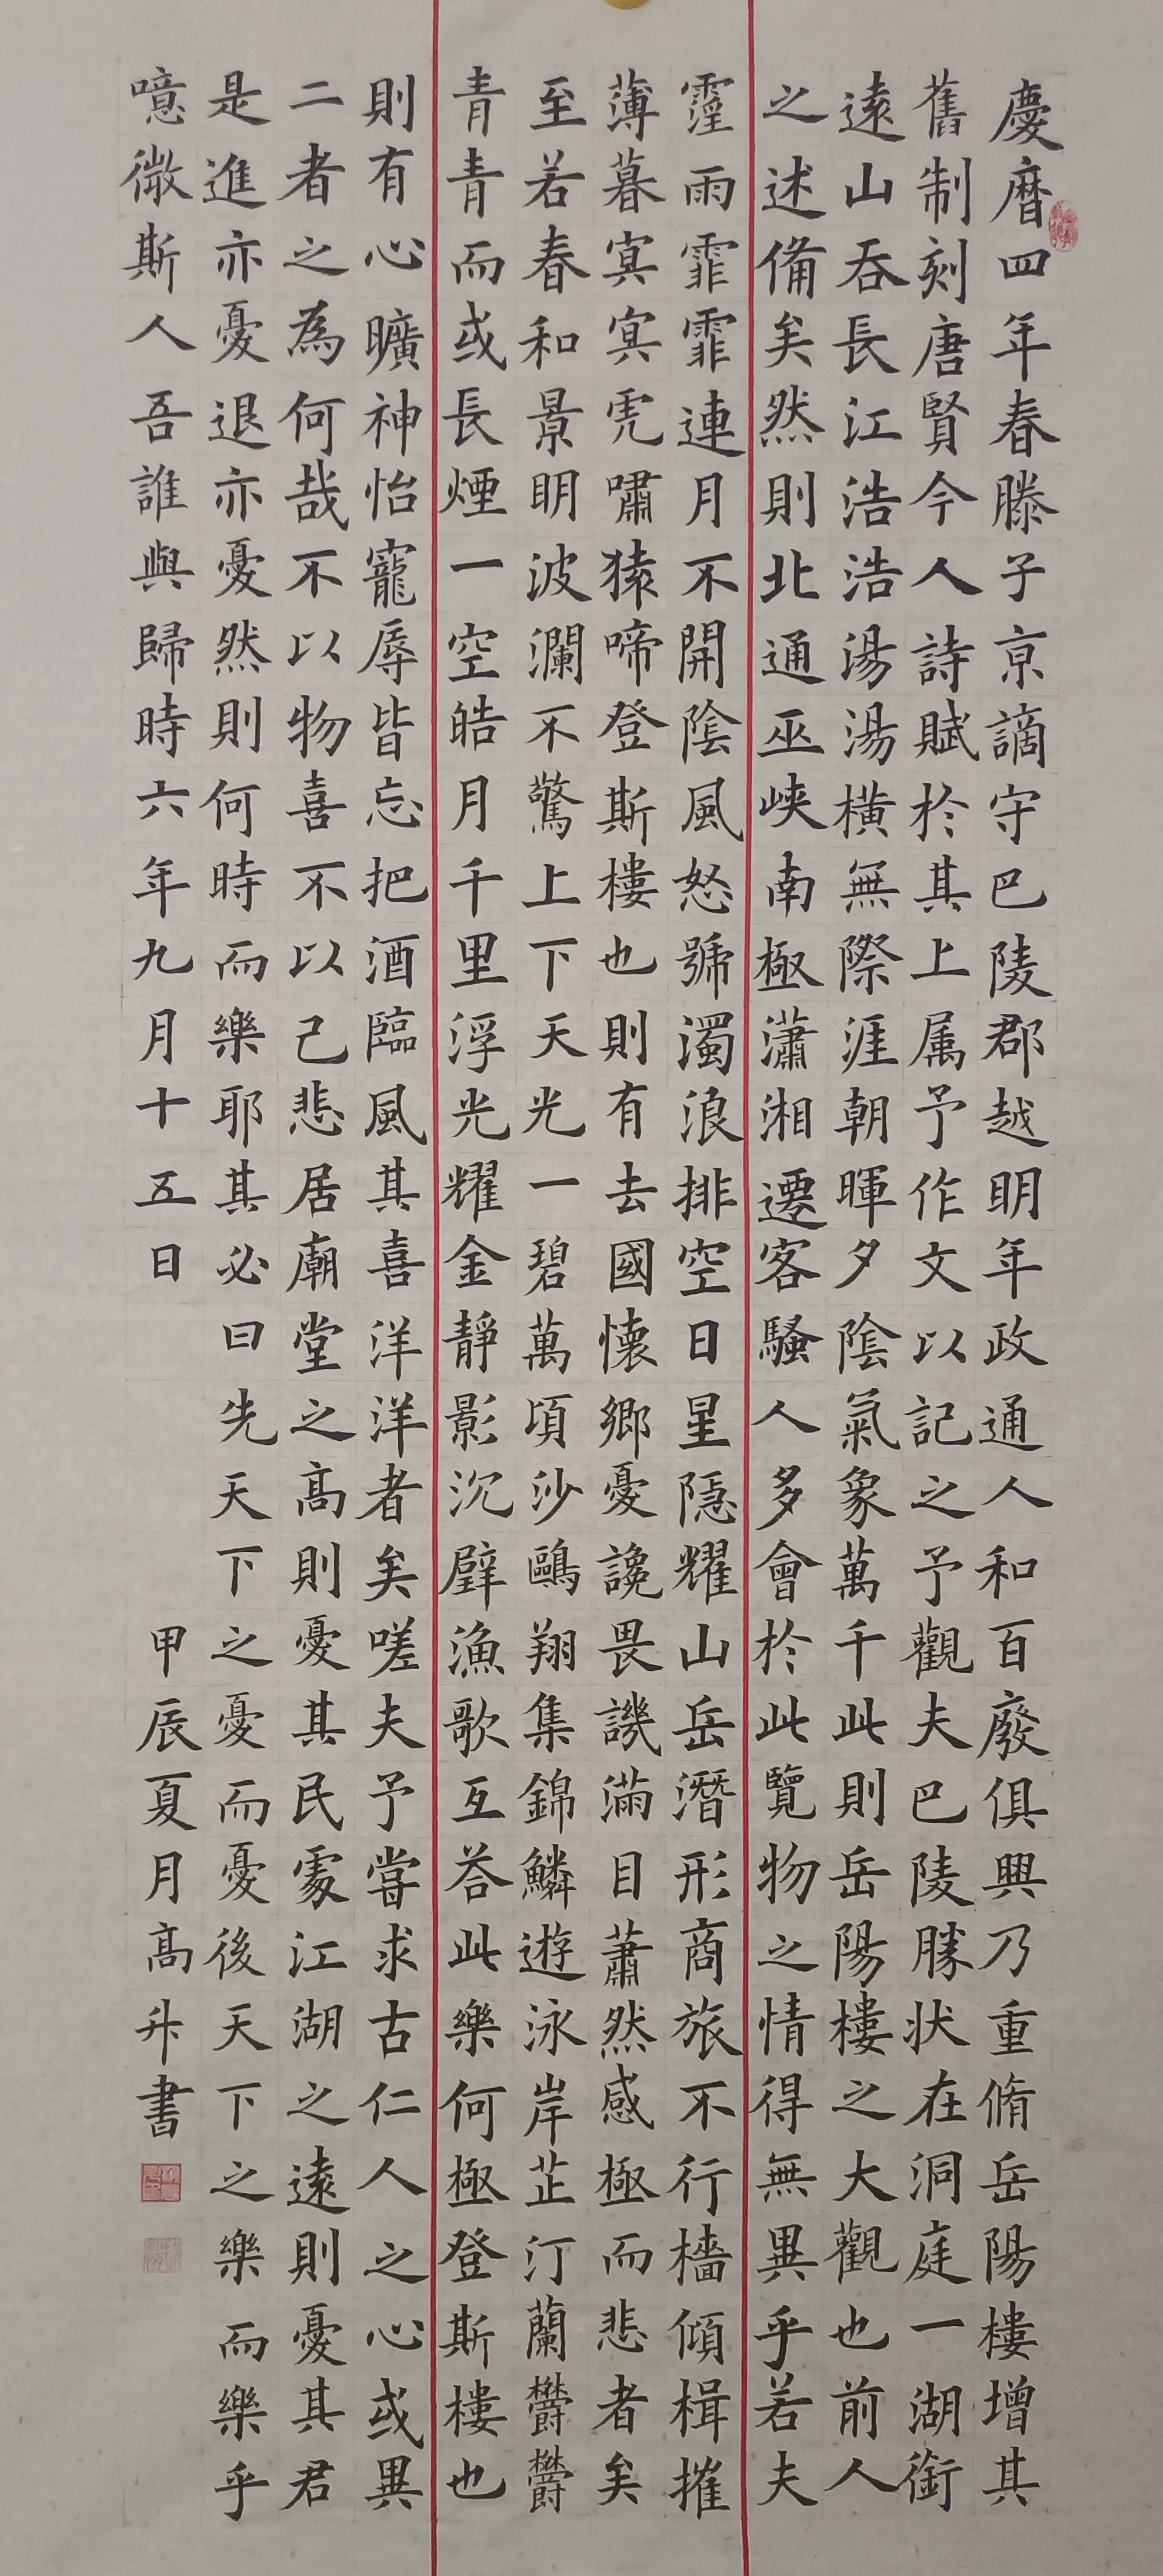 慶曆四年春滕子京謫守巴陵郡越明年政通人和百廢俱興乃重脩岳陽樓增其
舊制刻唐賢今人詩賦於其上属予作文以記之予觀夫巴陵勝状在洞庭一湖銜
遠山吞長江浩浩湯湯橫無際涯朝暉夕陰氣象萬千此則岳陽樓之大觀也前人
之述備矣然則北通巫峽南極瀟湘遷客騷人多會於此覽物之情得無異乎若夫
霪雨霏霏連月不開陰風怒號濁浪排空日星隱耀山岳潛形商旅不行檣傾楫摧
薄暮冥冥虎嘯猿啼登斯樓也則有去國懷鄉憂讒畏譏滿目蕭然感極而悲者矣
至若春和景明波瀾不驚上下天光一碧萬頃沙鷗翔集錦鱗遊泳岸芷汀蘭欝欝
青青而或長煙一空皓月千里浮光耀金靜影沉璧漁歌互荅此樂何極登斯樓也
則有心曠神怡寵辱皆忘把酒臨風其喜洋洋者矣嗟夫予嘗求古仁人之心或異
二者之為何哉不以物喜不以己悲居廟堂之高則憂其民處江湖之遠則憂其君
是進亦憂退亦憂然則何時而樂耶其必曰先天下之憂而憂後天下之樂而樂乎
噫微斯人吾誰與歸時六年九月十五日
甲辰夏月高升書